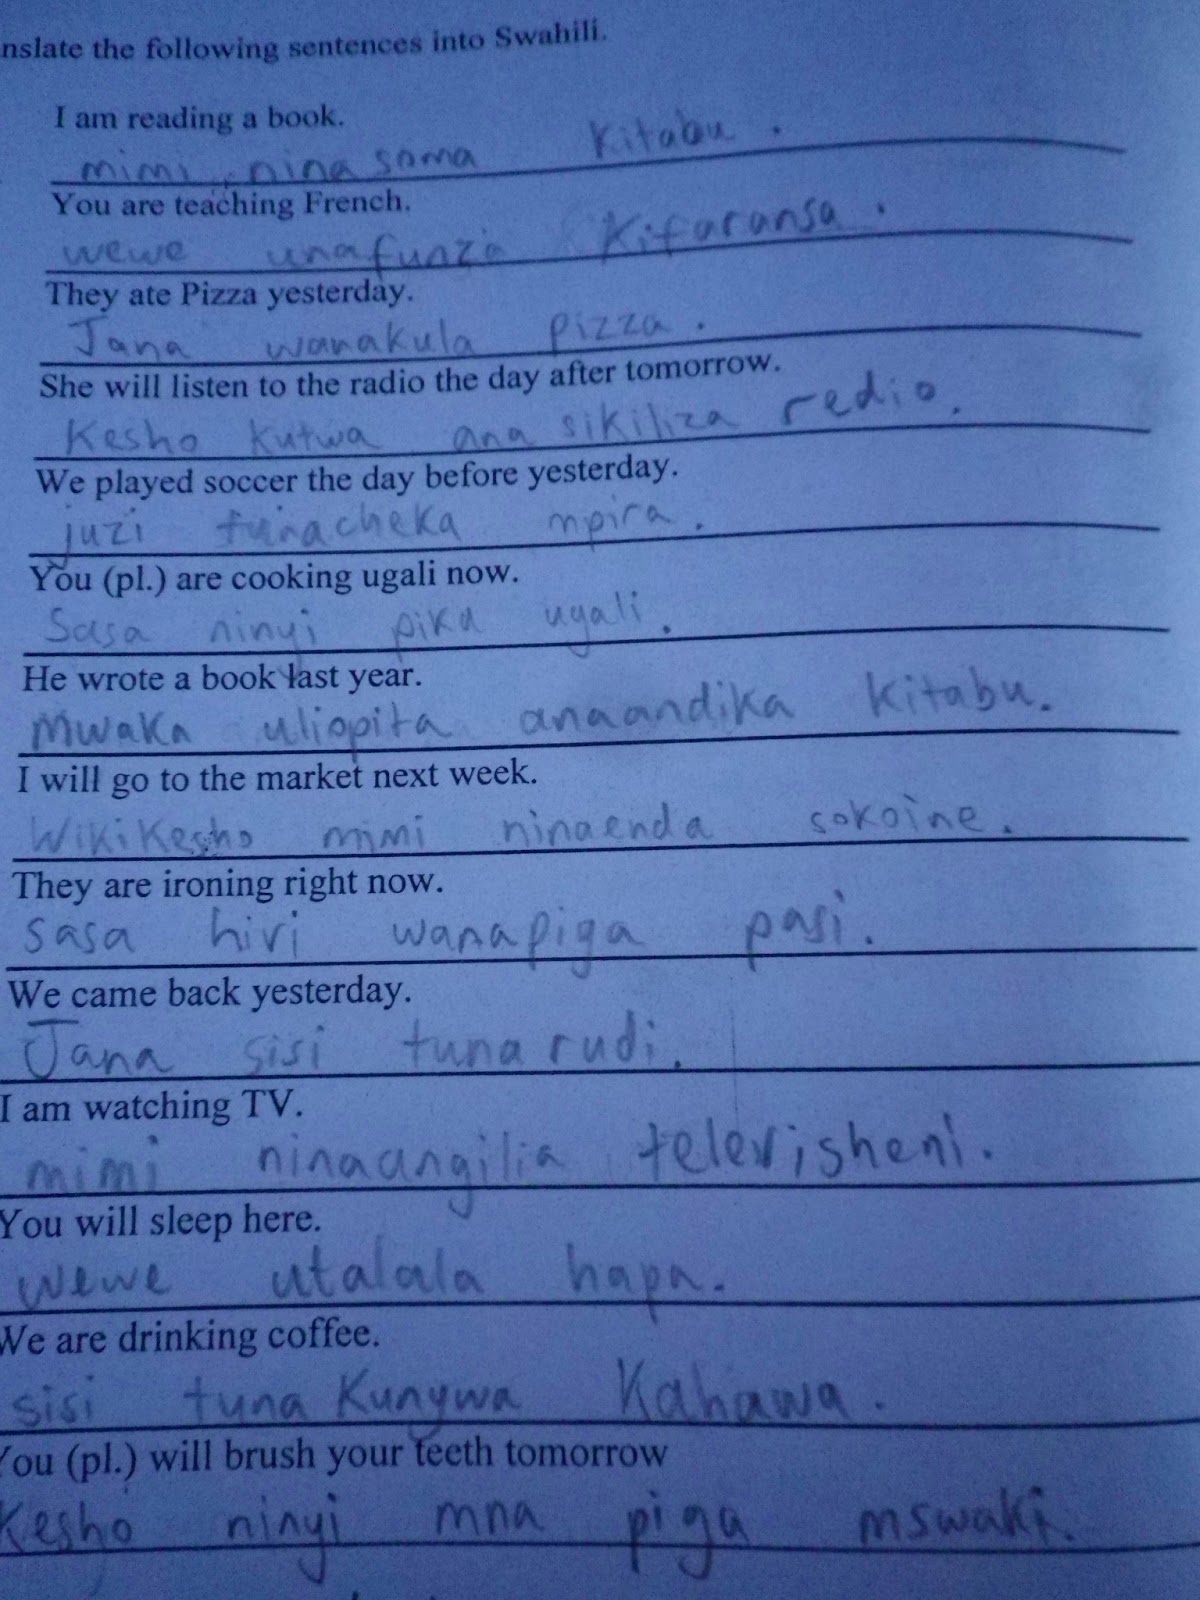 nslate the following sentences into Swahili.
I am reading a book.
mimi ninasoma kitabu.
You are teaching French.
wewe unafunza Kifaransa.
They ate Pizza yesterday.
Jana wanakula pizza.
She will listen to the radio the day after tomorrow.
Kesho kutwa ana sikiliza redio.
We played soccer the day before yesterday.
juzi tunacheka mpira.
You (pl.) are cooking ugali now.
Sasa ninyi pika ugali.
He wrote a book last year.
Mwaka uliopita anaandika kitabu.
I will go to the market next week.
Wiki Kesho mimi ninaenda sokoine.
They are ironing right now.
Sasa hivi wanapiga pasi.
We came back yesterday.
Jana sisi tunarudi.
I am watching TV.
mimi ninaangilia televisheni.
You will sleep here.
wewe utalala hapa.
We are drinking coffee.
sisi tuna Kunywa Kahawa.
You (pl.) will brush your teeth tomorrow
Kesho ninyi mna piga mswaki.